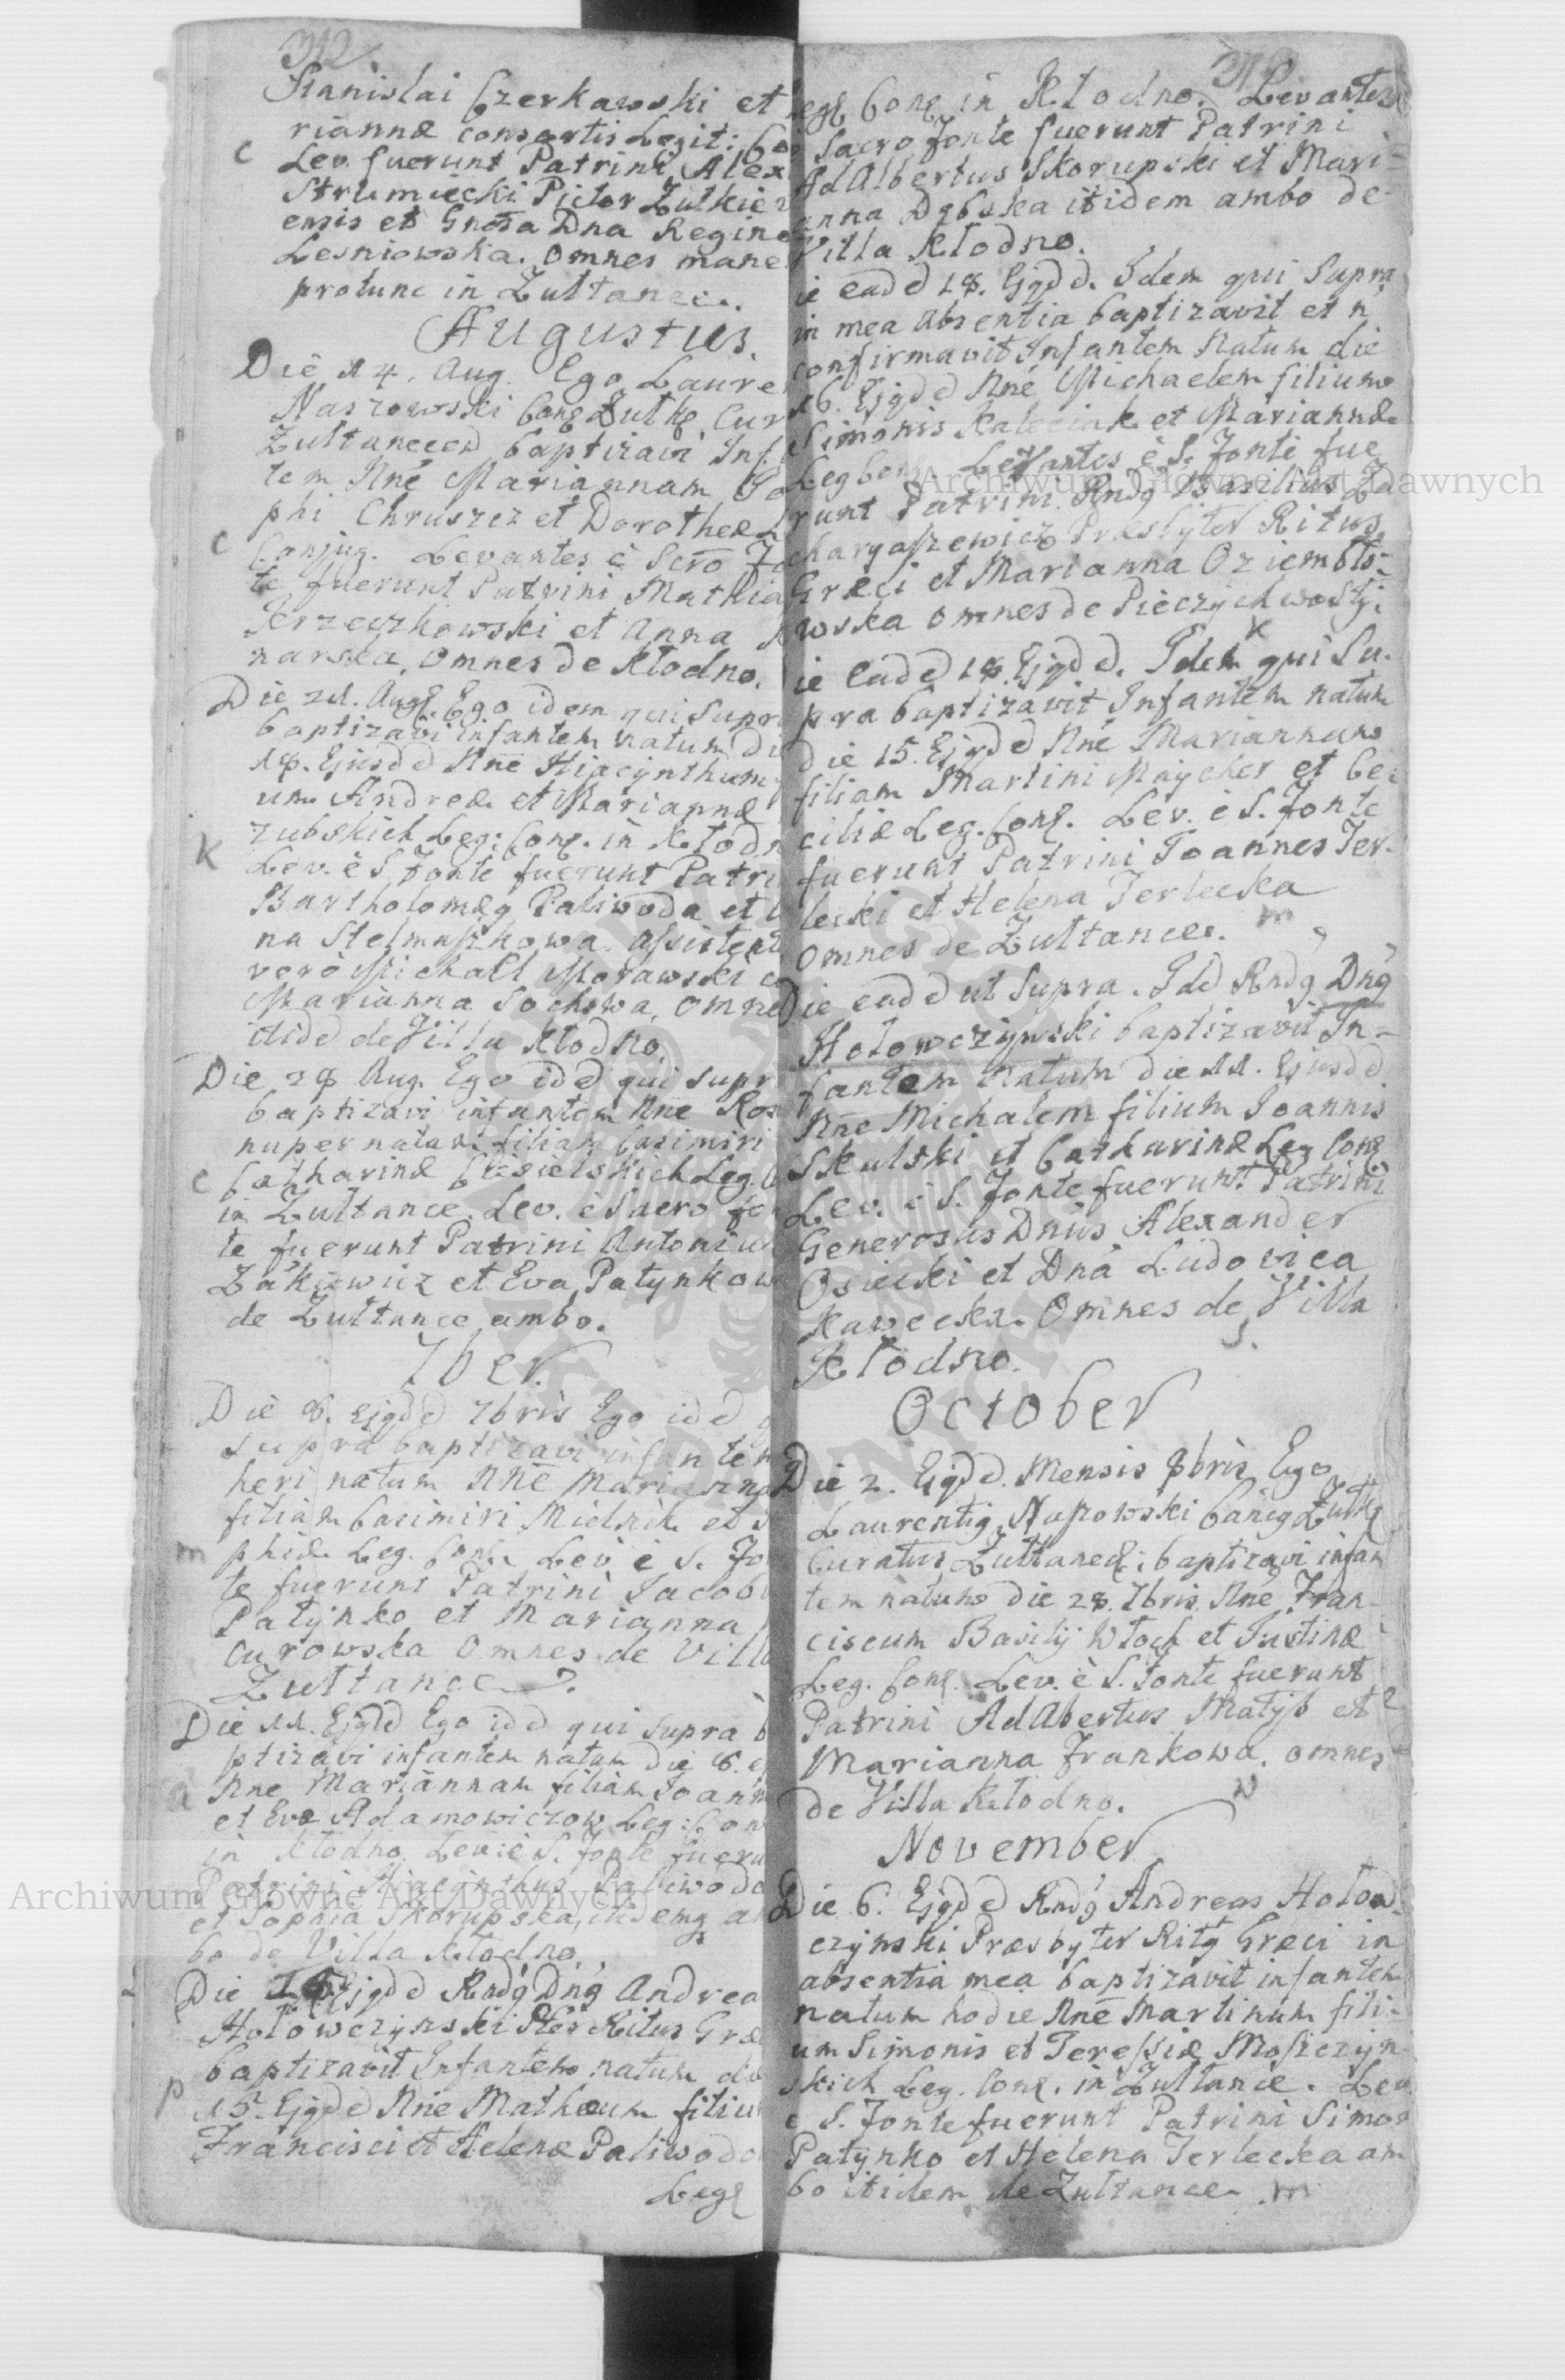 312.
Stanislai Czerkawski et
riannæ consortis Legit:
c
Lev. fuerunt Patrini Alex
Strumiecki Pictor Zulkiew
ensis et Gnosa Dna Regina
Lesniowska. Omnes mane
protunc in Zultance.
Augustus.
Die 14. Aug. Ego Laure
Naszowski Cong Zulk Cur
Zultanceen baptizavi Inf
tem Nne Mariannam Jo
phi Chruszcz et Dorotheæ
c
Conjug. Levantes è Scro Fo
te fuerunt Patrini Mathia
Jerzeczkowski et Anna
narska, Omnes de Kłodno.
Die 21. Aug. Ego idem qui supr
baptizavi infantem natum di
18. Ejusdd Nne Hiacynthum
um Andreæ et Mariannæ
zubskich Leg: Conj. in Kłodn
K
Lev. è S. Fonte fuerunt Patri
Bartholomæg Paliwoda et
na Stelmaszkowa. Assistent
verò Michael Morawski
Marianna Sochowa, Omne
itidd de Villa Kłodno.
Die 28 Aug. Ego idd qui supr
baptizavi infantem Nne Ros
nuper natam filiam Casimiri
Catharinæ Ciesielskich Leg.
c
in Zultance. Lev. è Sacro fo
te fuerunt Patrini Antoniu
Zakiewicz et Eva Patynkow
de Zultance ambo.
7ber.
Die 8. Ejgdd 7bris Ego idd
supra baptizavi infantem
heri natum Nne Marianna
filiam Casimiri Mielnik et
phiæ Leg. Conj. Lev è S. Fo
m
te fuerunt Patrini Jacob
Patynko et Marianna
curowska Omnes de Villa
Zultance.
Die 11. Ejgdd Ego idd qui supra b
ptizavi infantem natum die 8.
Nne Mariannam filiam Joann
a
et Evæ Adamowiczow Leg: Con
in Kłodno. Lev: è S. Fonte fueru
Patrini Hiacynthus Paliwoda
et Sophia Skorupska, itidemg am
bo de Villa Kłodno.
Die Ejgdd Rndg Dng Andrea
Hołowczynski Pter Ritus Græ
baptizavit Infantem natum di
p
15. Ejgdd Nne Mathæum filiu
Francisci et Helenæ Paliwodo
Leg
Leg Conj in Kłodno. Levantes
Sacro Fonte fuerunt Patrini
AdAlbertus Skorupski et Mari-
anna Dębska itidem ambo de
Villa Kłodno.
ie eadd 18. Ejgdd. Idem qui Supra
in mea Absentia baptizavit et n
confirmavit Infantem Natum die
16. Ejgdd Nne Michaelem filium
Simonis Kaleciak et Mariannæ
Leg Conj. Levantes è S. Fonte fue
runt Patrini Rndg Basilius Za
charyaszewicz Præsbyter Ritus
Græci et Marianna Oziembło-
wska omnes de Pieczychwosty
K
ie Eadd 18. Ejgdd. Idem qui Su-
pra baptizavit Infantem natum
die 15. Ejgdd Nne Mariannam
filiam Martini Maycher et Ce-
ciliæ Leg. Conj. Lev. è S. Fonte
fuerunt Patrini Joannes Ter-
lecki et Helena Terlecka
Omnes de Zultance. m
Die eadd ut Supra. Idd Rndg Dng
Hołowczynski baptizavit In-
fantem Natum die 11. Ejusdd
Nne Michalem filium Joannis
Skulski et Catharinæ Leg Conj
Lev. è S. Fonte fuerunt Patrini
Generosus Dnus Alexander
Osiecki et Dna Ludovica
Kawecka. Omnes de Villa
Kłodno. S.
October
Die 2. Ejgdd. Mensis 8bris Ego
Laurentig Naszowski Cang Zulk
Curatus Zultanec: baptizavi infan
tem natum die 28. 7bris. Nne Fran-
ciscum Basilij Włoch et Justinæ
Leg. Conj. Lev. è S. Fonte fuerunt
Patrini AdAlbertus Matys et
Marianna Frankowa. omnes
de Villa Kłodno. W
November
Die 6. Ejgdd Rndg Andreas Hołow-
czynski Præsbyter Ritg Græci in
absentia mea baptizavit infantem
natum hodie Nne Martinum fili-
um Simonis et Teressiæ Moszczyn
skich Leg. Conj. in Zultance. Lev
è S. Fonte fuerunt Patrini Simon
Patynko et Helena Terlecka am
bo itidem de Zultance. m
Archiwum Główne Akt Dawnych
Archiwum Główne Akt Dawnych